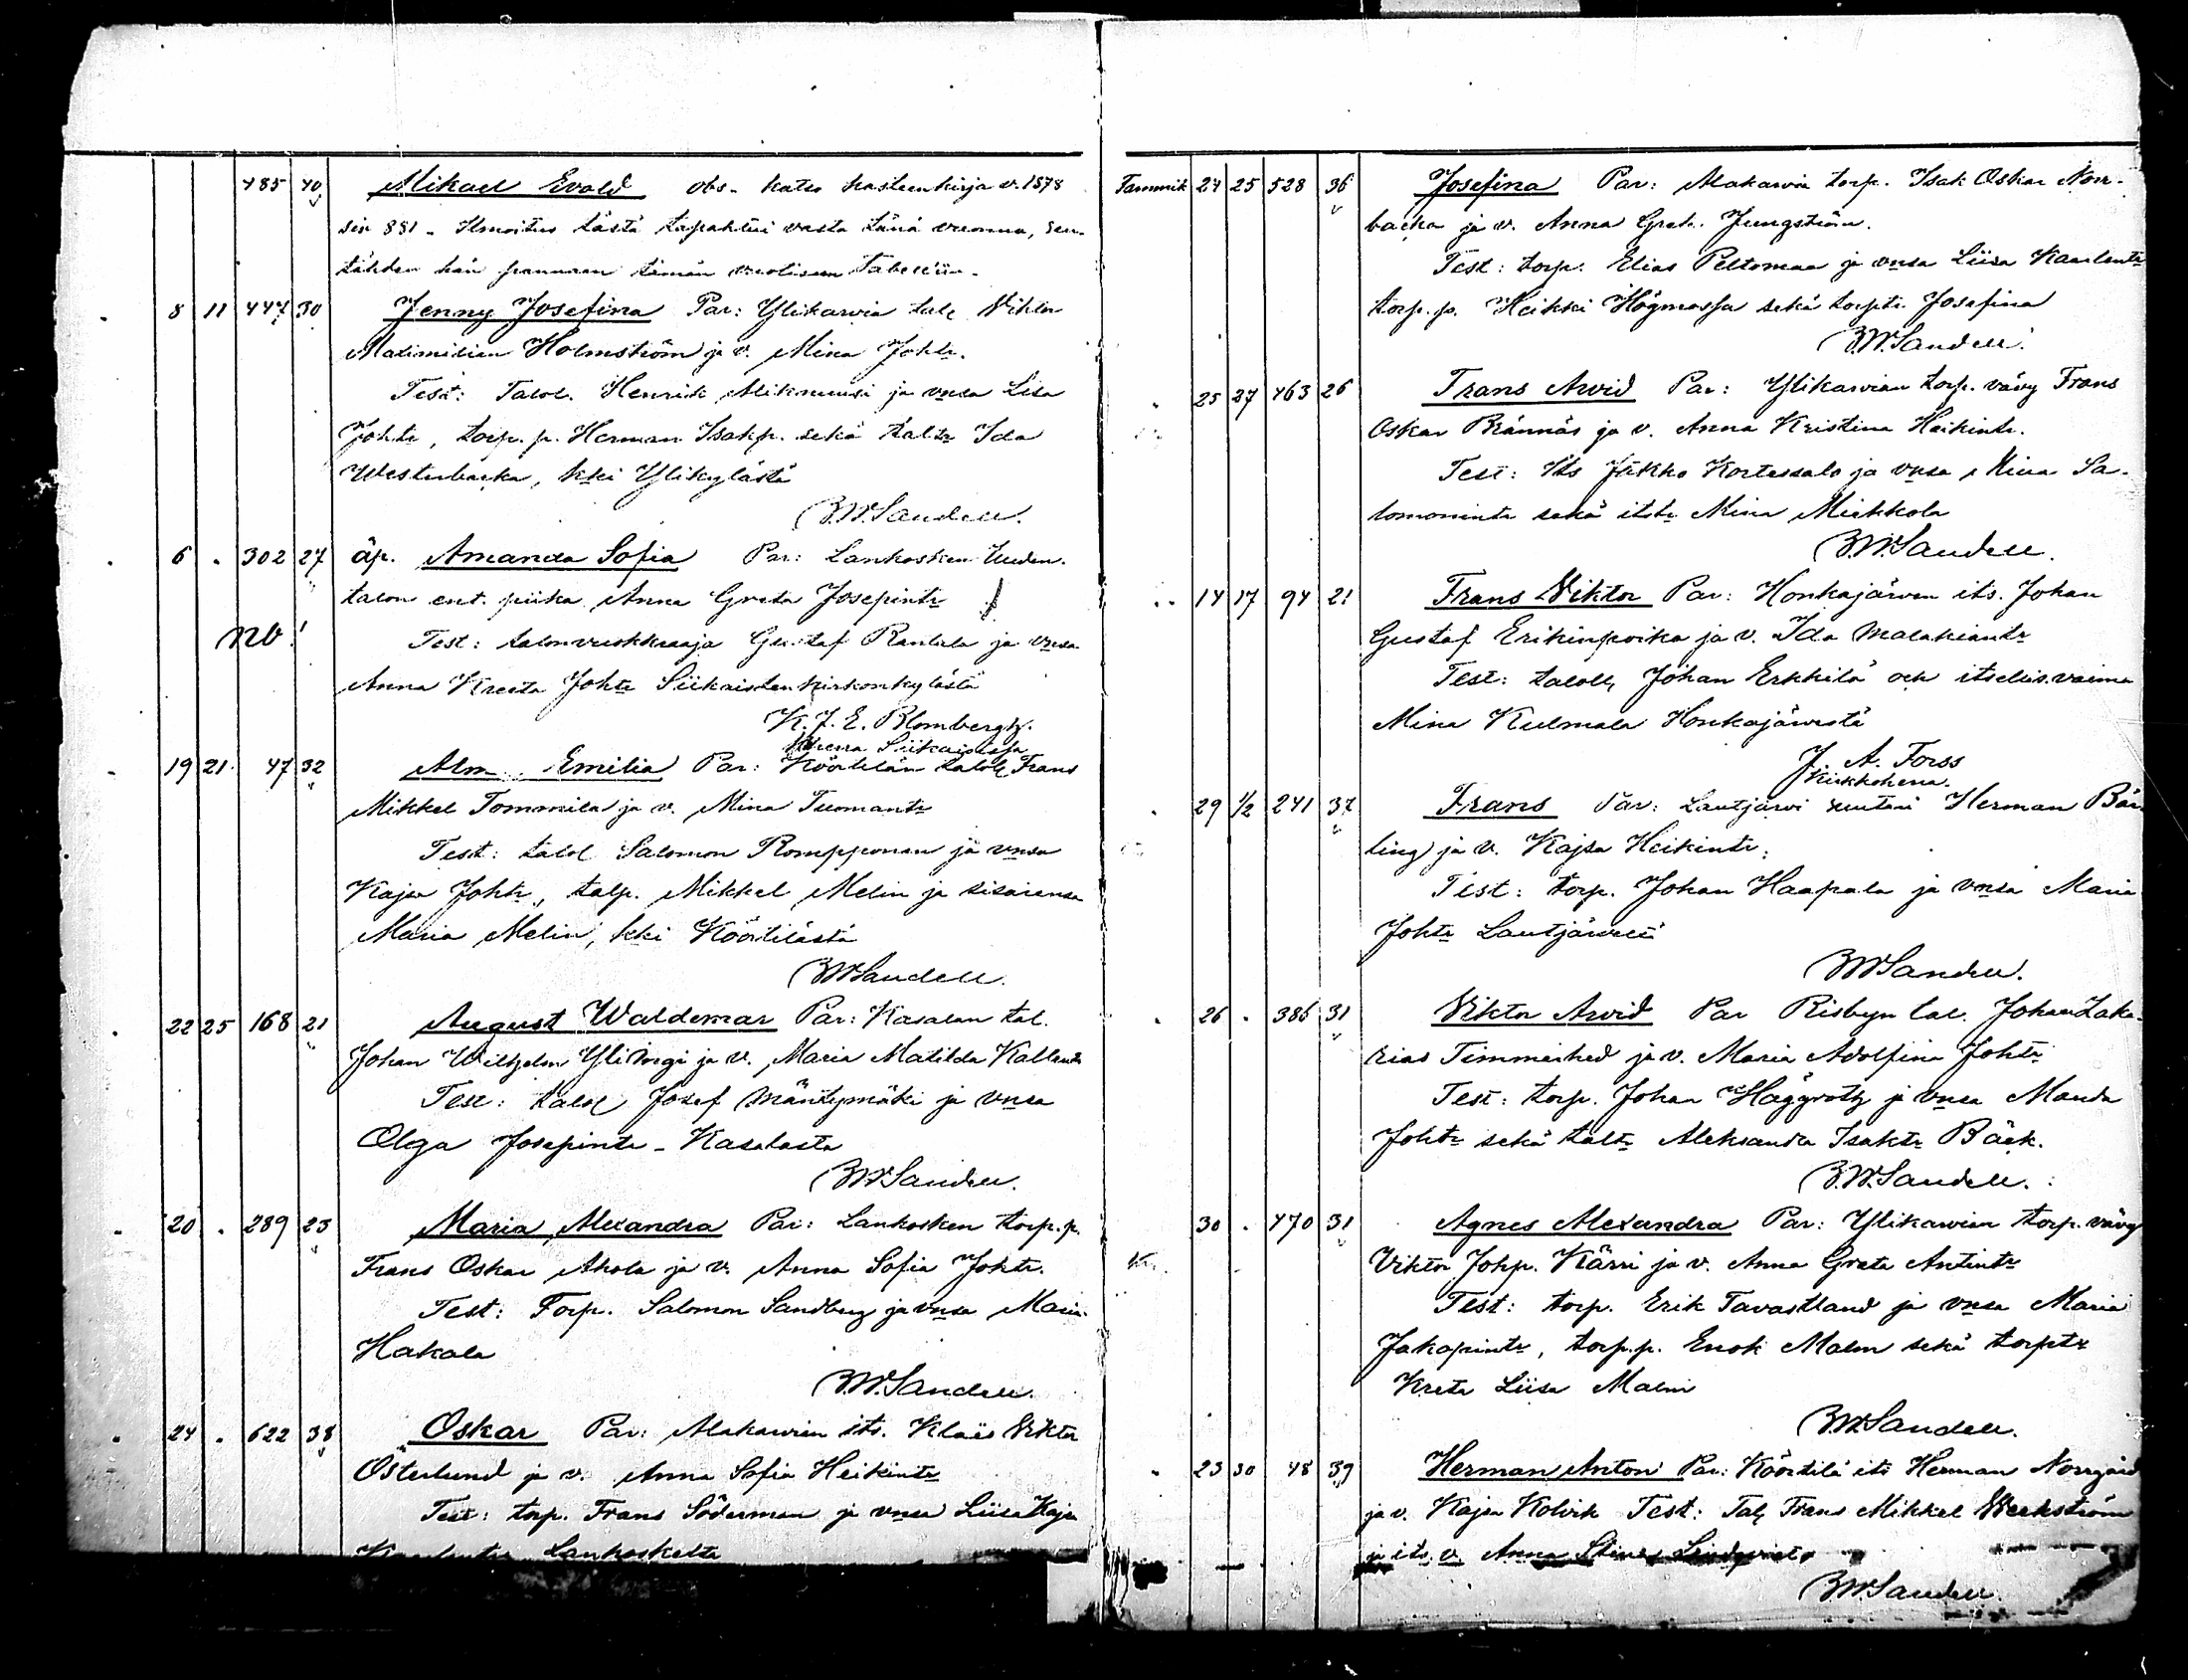 485 40 Mikael Evald obs. katso kastenkirja v. 1878
siv 881. Ilmoitus tästä tapahtui vasta tänä vuonna, sen
tähden hän pannaan tämän vuotiseen tabelliin.
8 11 447 30 Jenny Josefina Par: Ylikarvia tal. Viktor
Maximilian Holmström ja v. Mina Johtr.
Test: Talol. Henrik Aliknuusi ja vnsa Lisa
Johtr, torp. p. Herman Isakp. sekä taltr Ida
Westerbacka, kki Ylikylästä
B.W.Sandell.
6 . 302 27 äp. Amanda Sofia Par: Lankosken Uuden.
talon ent. piika Anna Greta Josepintr
nb!
Test: talonvuokraaja Gustaf Rantala ja vnsa
Anna Kreeta Johtr Siikaisten kirkonkylästä
K. J. E. Blombergh.
Khrra Siikaisissa
19 21 47 32 Alm Emilia Par: Köörtilän talol. Frans
Mikkel Tommila ja v. Mina Tuomantr
Test: talol Salomon Rompponen ja vnsa
Kajsa Johtr, talp. Mikkel Melin ja sisarensa
Maria Melin, kki Köörtilästä
B.W.Sandell.
22 25 168 21 August Waldemar Par: Kasalan tal.
Johan Wilhelm Yli ja v. Maria Matilda Kallentr
Test: talol Josef Mäntymäki ja vnsa
Olga Josepintr - Kasalasta
B.W.Sandell.
20 . 289 23 Maria Alexandra Par: Lankosken torp. p.
Frans Oskar Ahola ja v. Anna Sofia Johtr.
Test: Torp. Salomon Sandberg ja vnsa Maria
Hakala
B.W.Sandell.
24 . 622 38 Oskar Par: Alakarvian its. Klaës Viktor
Österlund ja v. Anna Sofia Heikintr
Test: torp. Frans Söderman ja vnsa Liisa Kajsa
Lankoskelta
Tammik 24 25 528 36 Josefina Par: Alakarvia torp. Isak Oskar Norr-
backa ja v. Anna Gret. Ljungström.
Test: torp. Elias Peltomaa ja vnsa Liisa Kaarlentr
torp. p. Heikki Högmossa sekä torptr. Josefina
B.W.Sandell.
25 27 463 26 Frans Arvid Par: Ylikarvian torp. vävy Frans
Oskar Brännäs ja v. Anna Kristina Heikintr.
Test: its Jakko Kortessalo ja vnsa Mina Sa-
lomonintr sekä itstr Mina Mickkola
B.W.Sandell.
14 17 94 21 Frans Viktor Par: Honkajärven its. Johan
Gustaf Erikinpoika ja v. Ida Malakiantr
Test: talol Johan Erkkilä och itsellis. vaimo
Mina Kulmala Honkajärvestä
J. A. Forss
Kirkkoherra.
29 1/2 241 37 Frans Par: Lautjärvi suutari Herman Bär
ling ja v. Kajsa Heikintr.
Test: torp. Johan Haapala ja vnsa Maria
Johtr Lautjärveltä
B.W.Sandell.
26 . 386 31 Viktor Arvid Par Risbyn tal. Johan Zaka-
rias Timmerhed ja v. Maria Adolfina Johtr
Test: torp. Johan Häggroth ja vnsa Manda
Johtr sekä taltr Aleksandra Isaktr Bäck.
B.W.Sandell.
30 . 470 31 Agnes Alexandra Par: Ylikarvian torp. vävy
Viktor Johp. Kärri ja v. Anna Greta Antintr
Test: torp. Erik Tavastland ja vnsa Maria
Jakopintr, torp. p. Enok Malm sekä torptr
Kreta Liisa Malm
B.W.Sandell.
23 30 48 39 Herman Anton Par: Köörtilä its Herman Norrgård
ja v. Kajsa Kolvik Test: Tal. Frans Mikkel Werkström
ja its. v. Anna Stina Lindqvist
B.W.Sandell.